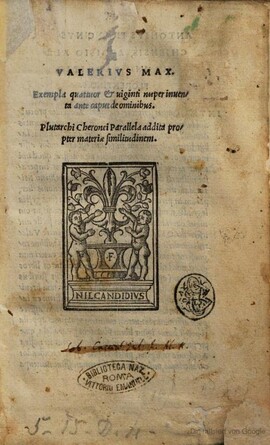 VALERIVS MAX.
Exempla quatuor & uiginti nuper inuen-
ta ante caput de ominibus.
Plutarchi Cheronei Parallela addita pro-
pter materiæ similitudinem.
F
NIL CANDIDIVS
BIBLIOTECA NAZ.
ROMA
VITTORIO EMANUELE
Digitized von Google